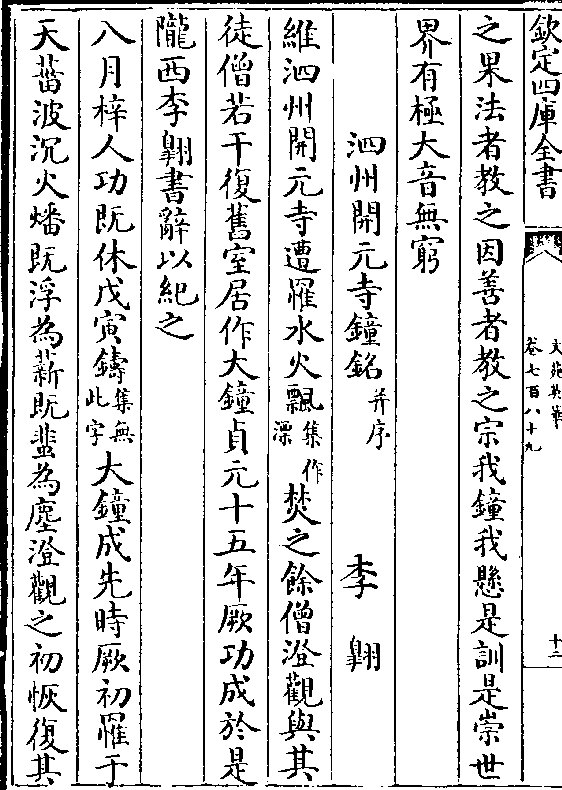 欽定四庫全書
文苑英華
卷七百八十九
十二
之果法者教之因善者教之宗我鐘我懸是訓是崇世
界有極大音無窮
泗州開元寺鐘銘并序 李翺
維泗州開元寺遭罹水火飄集作漂焚之餘僧澄觀與其
徒僧若干復舊室居作大鐘貞元十五年厥功成於是
隴西李翺書辭以紀之
八月梓人功既休戊寅鑄集無此字大鐘成先時厥初罹于
天菑波沉火燔既浮為薪既蜚為塵澄觀之初恢復其